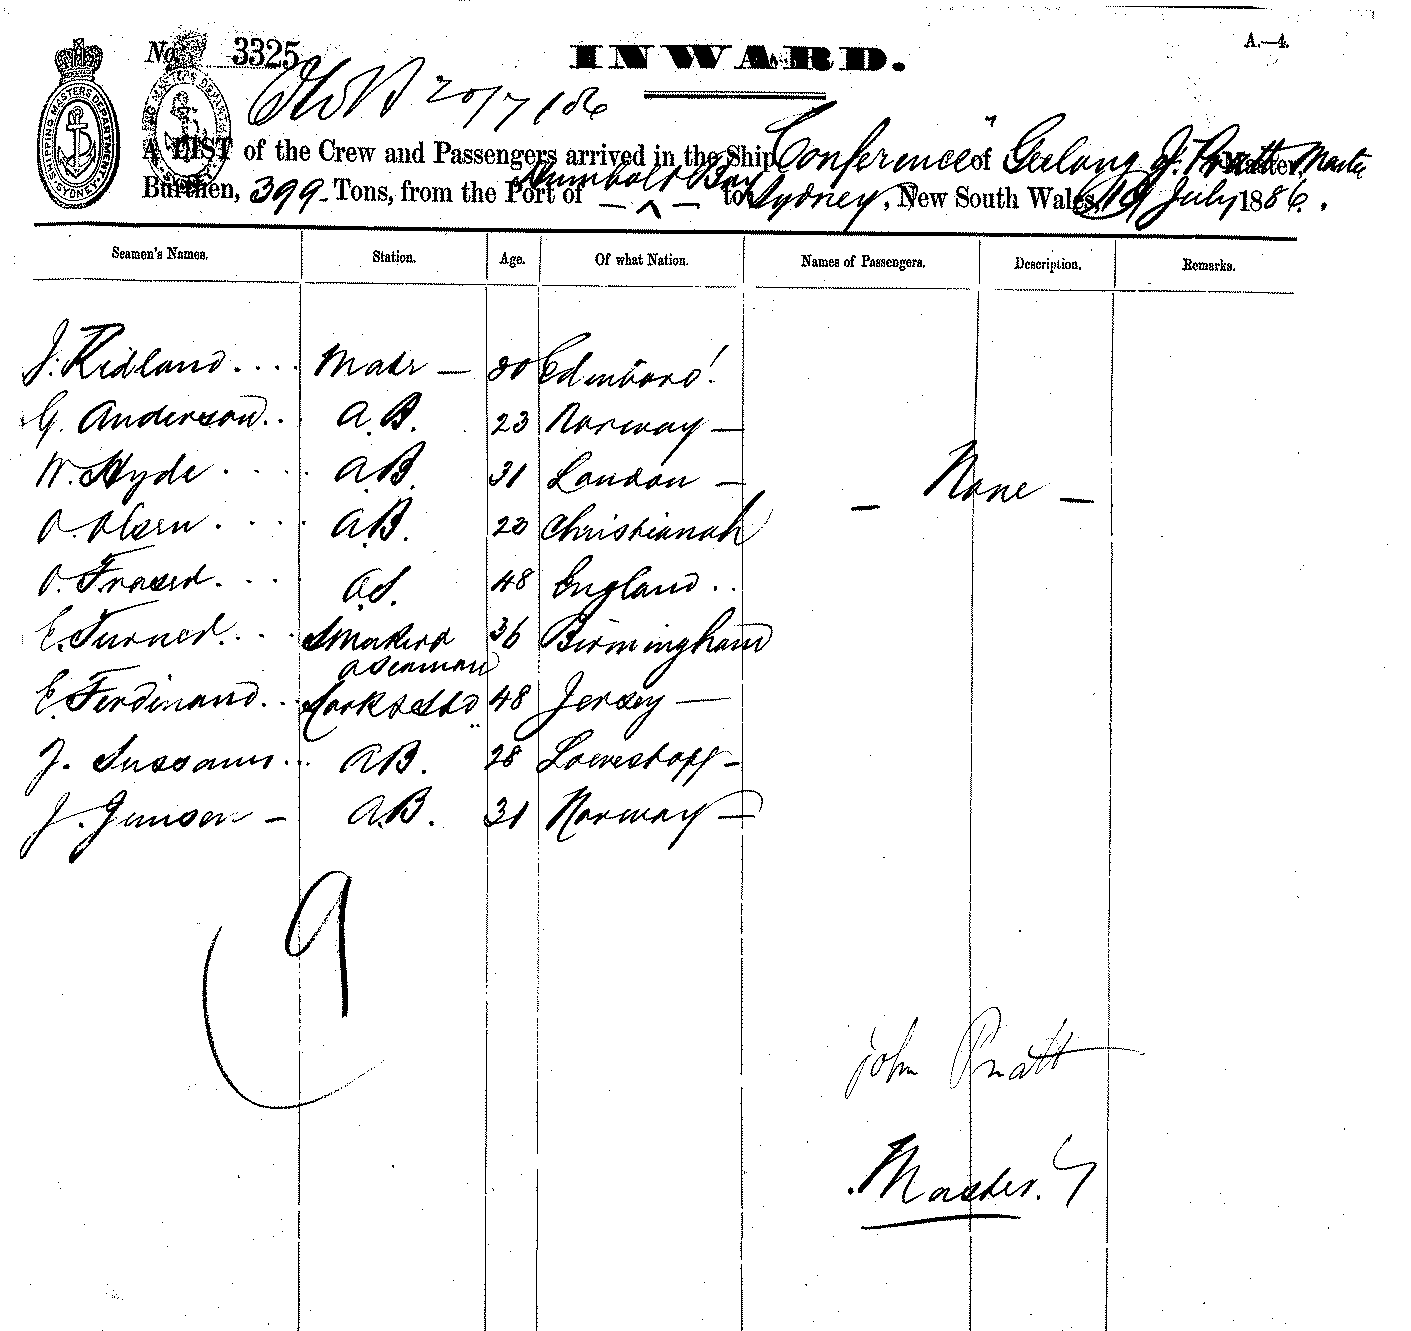 No. 3325 INWARD. A.—4.
SHIPPING MASTERS DEPARTMENT SYDNEY
20/7/86
A LIST of the Crew and Passengers arrived in the Ship "Conference" of Geelong J. Pratt Master
Burthen, 399 Tons, from the Port of Humboldt Bay to Sydney, New South Wales, 19 July 1886.
Seamen's Names. Station. Age. Of what Nation. Names of Passengers. Description. Remarks.
J. Ridland.... Mate — 30 Edinboro'.
G. Anderson... A.B. 23 Norway —
W. Hyde .... A.B. 31 London —
— None —
O. Olsen .... A.B. 23 Christianah
O. Fraser.... O.S. 48 England ..
E. Turner.... 36 Birmingham
& Seaman
E. Ferdinand... Cook & Std 48 Jersey —
J. A.B. 28 Lowestoff —
J. Jensen — A.B. 31 Norway —
9
John Pratt
Master.